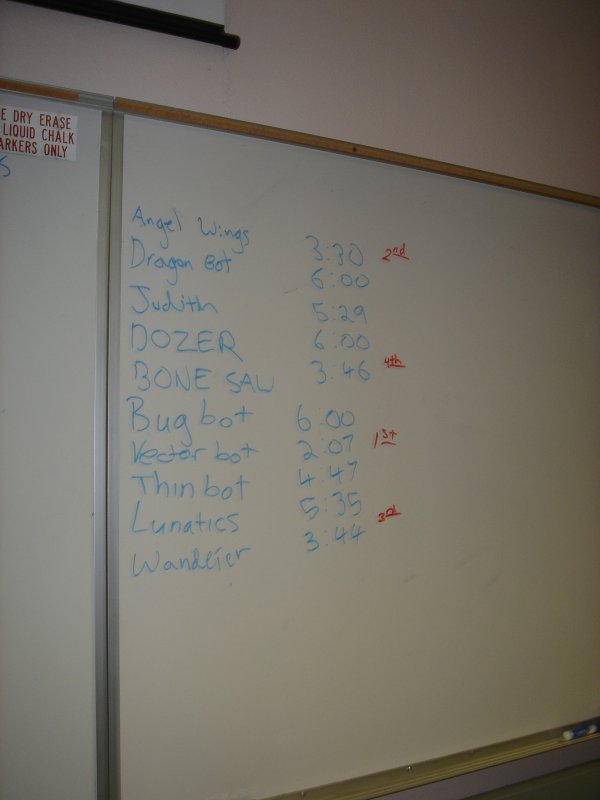 E DRY ERASE
LIQUID CHALK
ARKERS ONLY
S
Angel Wings 3:30 2nd
Dragon Bot 6:00
Judith 5:29
DOZER 6:00
BONE SAW 3:46 4th
Bug bot 6:00
Vector bot 2:07 1st
Thin bot 4:47
Lunatics 5:35
Wanderer 3:44 3rd